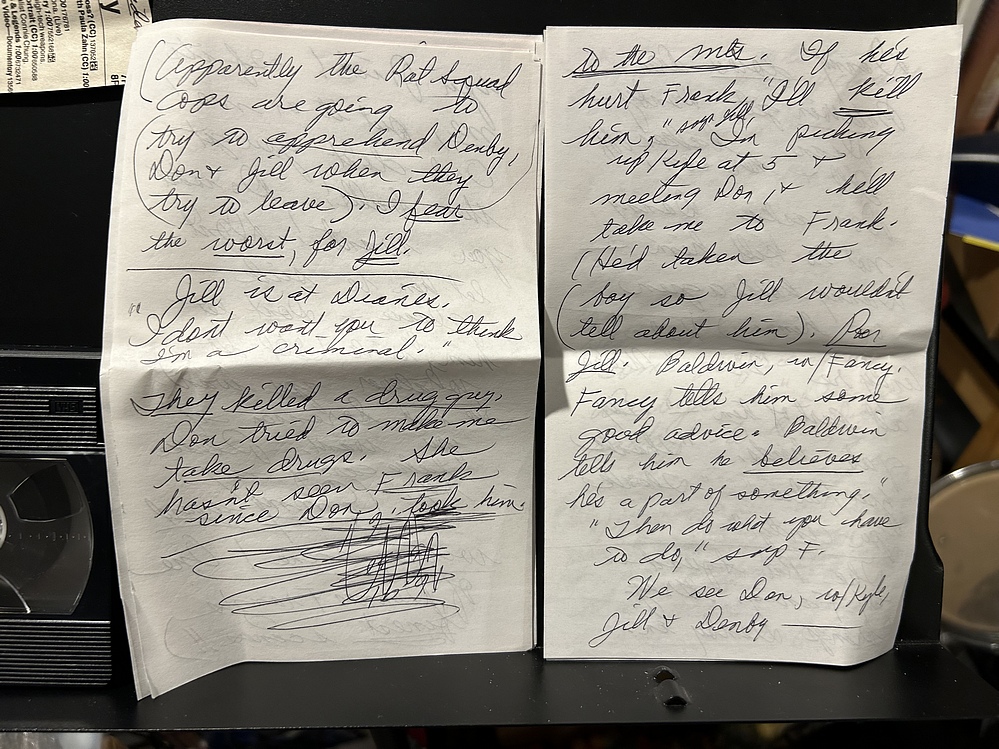 (Apparently the Rat squad
cops are going to
(try to apprehend Denby,
Don & Jill when they
try to leave). I fear
the worst, for Jill.
Jill is at Diane's.
"I don't want you to think
I'm a criminal."
They killed a drug guy.
Don tried to make me
take drugs. She
hasn't seen Frank
since Don took him.
to the mts. If he's
hurt Frank, "I'll kill
him," says Jill. I'm picking
up Kyle at 5 &
meeting Don, & he'll
take me to Frank.
(He'd taken the
(boy so Jill wouldn't
(tell about him). Poor
Jill. Baldwin, w/Fancy.
Fancy tells him some
good advice. Baldwin
tells him he believes
he's a part of something."
"Then do what you have
to do," says F.
We see Don, w/Kyle,
Jill & Denby